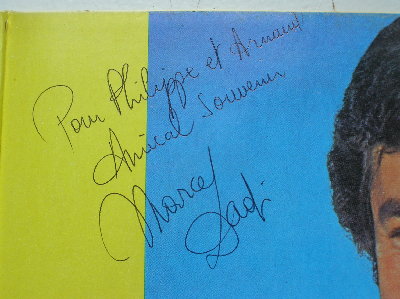 Pour Philippe et Arnaud
Amical Souvenir
Marcel
Dadi